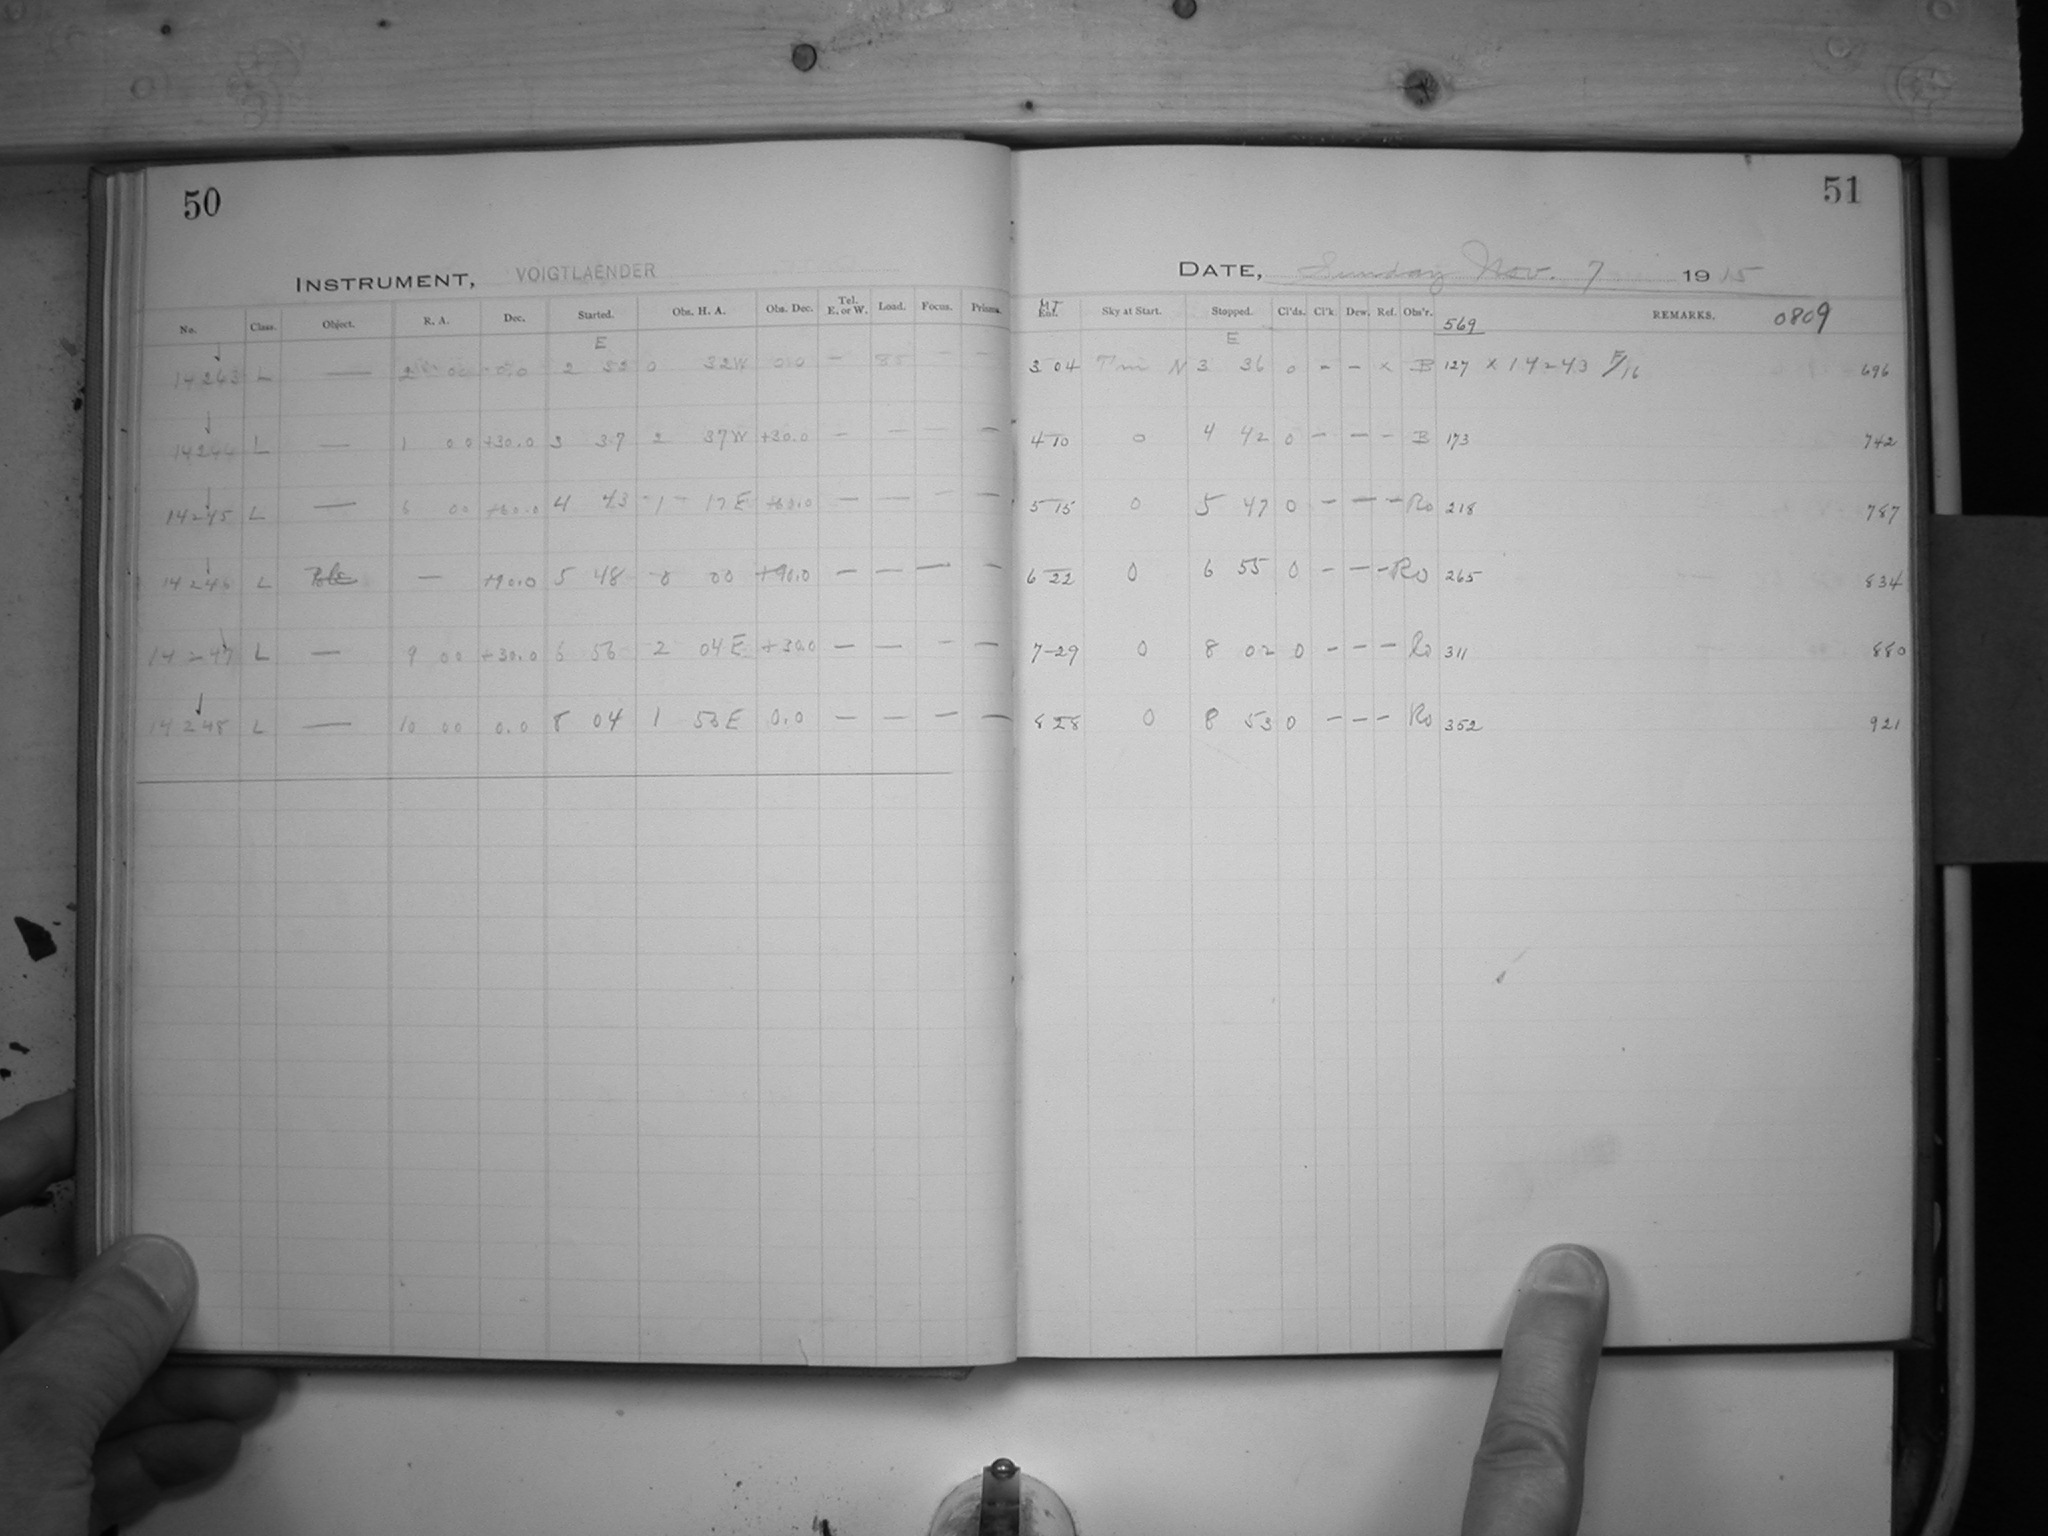 50
INSTRUMENT, VOIGTLAENDER
No. Class. Object. R. A. Dec. Started. Obs. H. A. Obs. Dec. Tel. E. or W. Load. Focus. Prisms.
E
14243 L — 2 00 0.0 2 53 0 32W 0.0 — 85 — —
14244 L — 1 00 +30.0 3 37 2 37W +30.0 — — — —
14245 L — 6 00 +60.0 4 43 1 17E +60.0 — — — —
14246 L — +90.0 5 48 0 00 +90.0 — — — —
14247 L — 9 00 +30.0 6 56 2 04E +30.0 — — — —
14248 L — 10 00 0.0 8 04 1 53E 0.0 — — — —
51
DATE, Sunday Nov. 7 1915
M.T. Sky at Start. Stopped. Cl'ds. Cl'k Dew. Ref. Obs'r. 569 REMARKS. 0809
E
3 04 N 3 36 0 - - x B 127 x 14243 F/16 696
4 10 0 4 42 0 - - - B 173 742
5 15 0 5 47 0 - - - Ro 218 787
6 22 0 6 55 0 - - - Ro 265 834
7-29 0 8 02 0 - - - Ro 311 880
8 28 0 8 53 0 - - - Ro 352 921